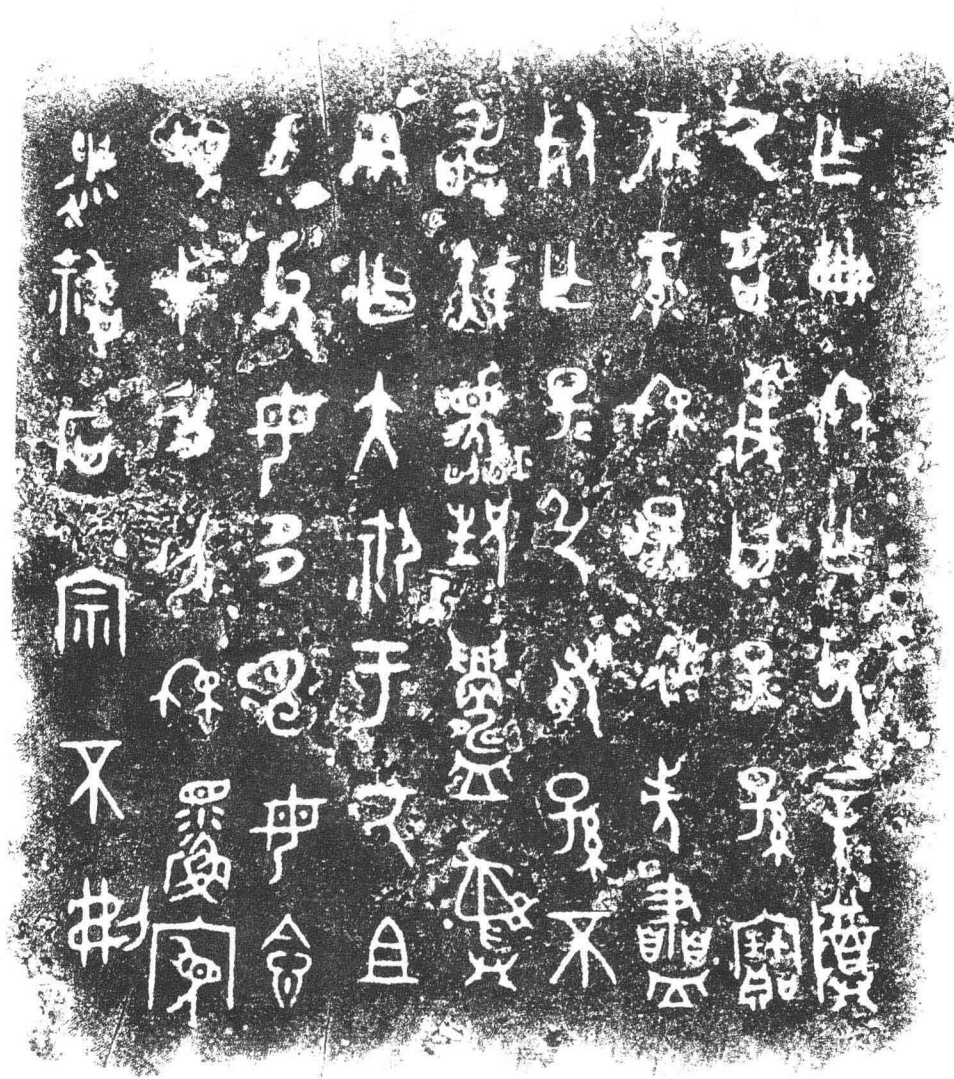 乍冊嗌乍父辛尊
厥名義曰子子孫寶
不彔嗌子子延先盡
死亡子子引有孫不
敢娣夒貺鑄彝
用乍大禦于厥且
匕父母多申母念
哉弋勿剝嗌鰥寡
遺祜石宗不刜